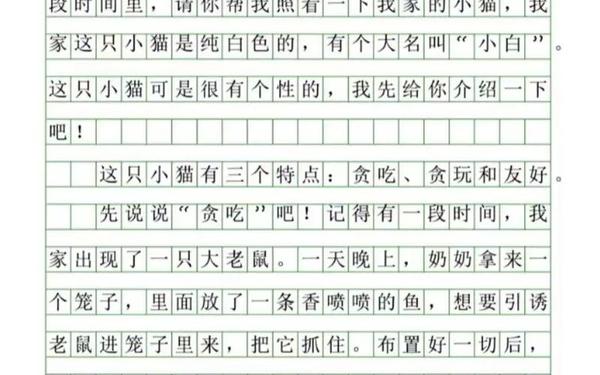 段时间里，请你帮我照看一下我家的小猫，我
家这只小猫是纯白色的，有个大名叫“小白”。
这只小猫可是很有个性的，我先给你介绍一下
吧！
这只小猫有三个特点：贪吃、贪玩和友好。
先说说“贪吃”吧！记得有一段时间，我
家出现了一只大老鼠。一天晚上，奶奶拿来一
个笼子，里面放了一条香喷喷的鱼，想要引诱
老鼠进笼子里来，把它抓住。布置好一切后，